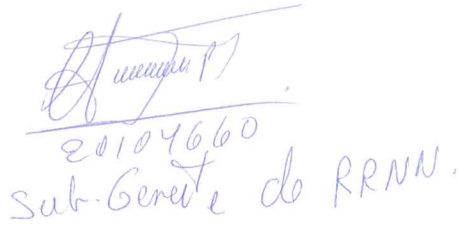 20104660
Sub-Gerente de RRNN.